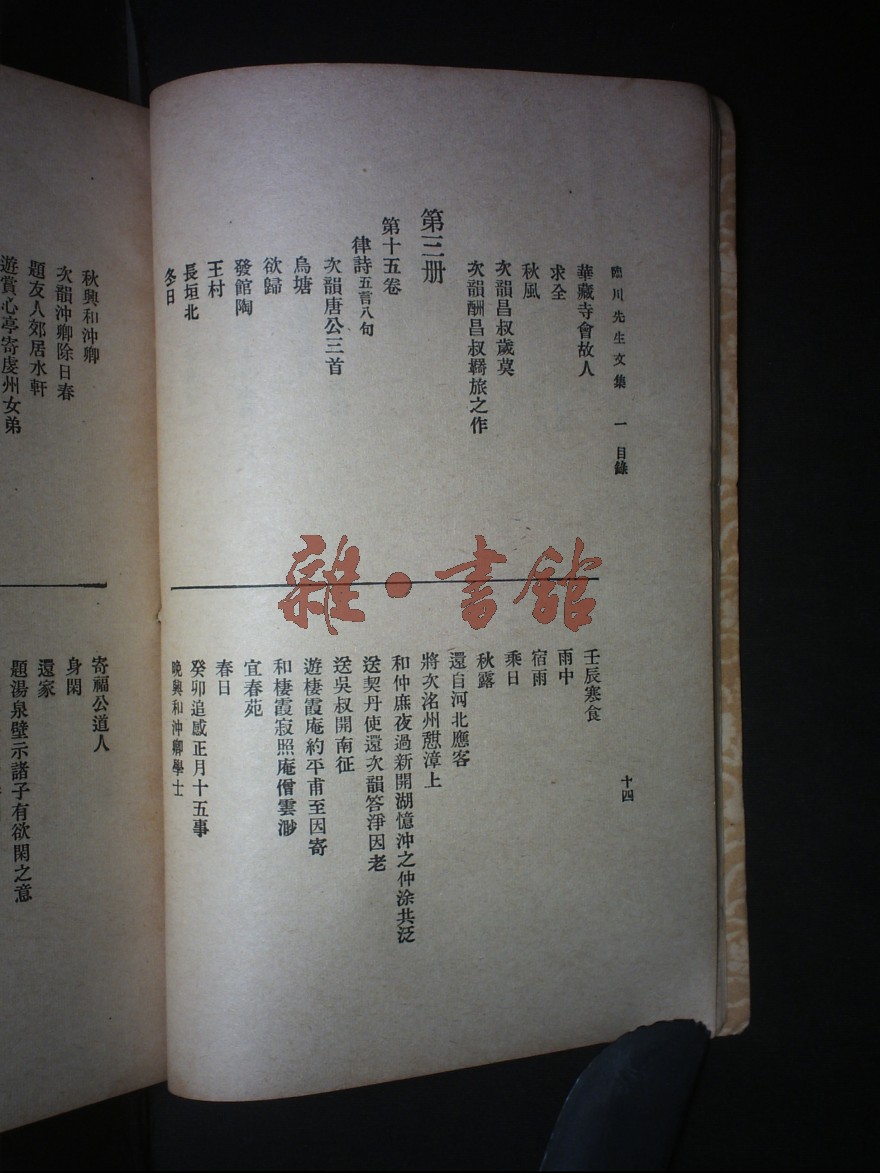 臨川先生文集 一 目錄
十四
華藏寺會故人
求全
秋風
次韻昌叔歲莫
次韻酬昌叔羇旅之作
第三册
第十五卷
律詩五言八句
次韻唐公三首
烏塘
欲歸
發館陶
王村
長垣北
冬日
壬辰寒食
雨中
宿雨
乘日
秋露
還自河北應客
將次洺州憇漳上
和仲庶夜過新開湖憶沖之仲涂共泛
送契丹使還次韻答淨因老
送吳叔開南征
遊棲霞庵約平甫至因寄
和棲霞寂照庵僧雲渺
宜春苑
春日
癸卯追感正月十五事
晚興和沖卿學士
秋興和沖卿
次韻沖卿除日春
題友人郊居水軒
遊賞心亭寄虔州女弟
寄福公道人
身閑
還家
題湯泉壁示諸子有欲閑之意
雜·書館